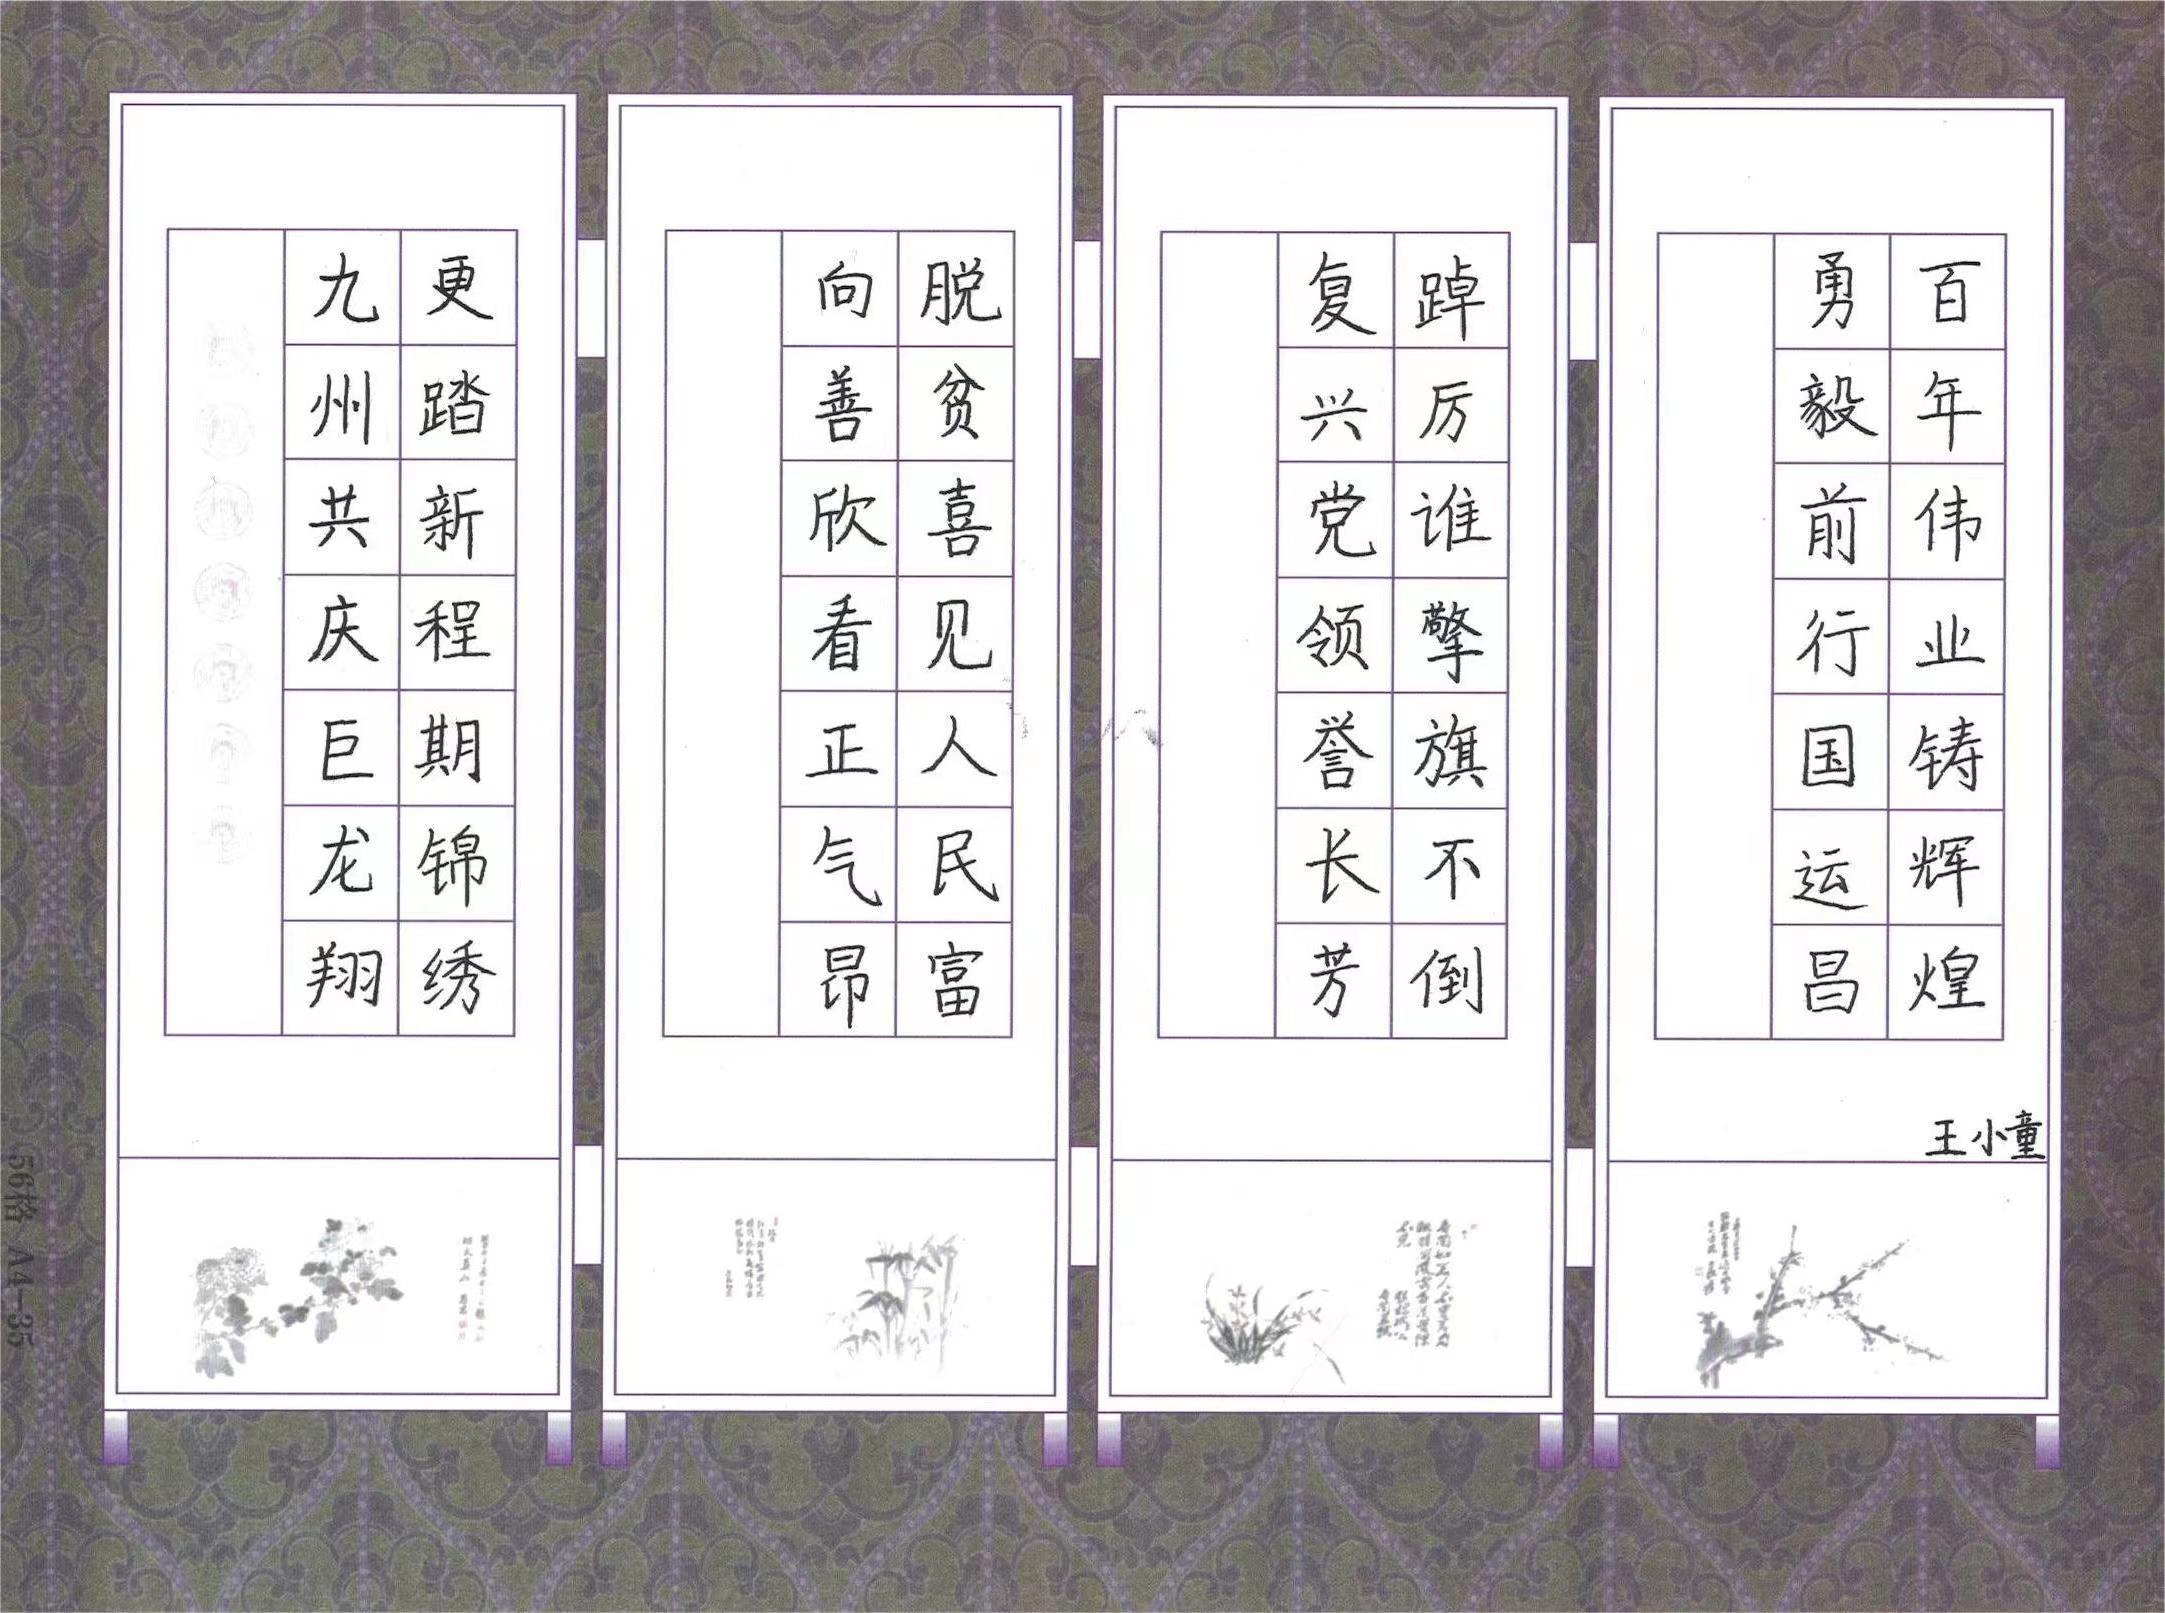 百年伟业铸辉煌
勇毅前行国运昌
踔厉谁擎旗不倒
复兴党领誉长芳
脱贫喜见人民富
向善欣看正气昂
更踏新程期锦绣
九州共庆巨龙翔
王小童
56格 A4-35